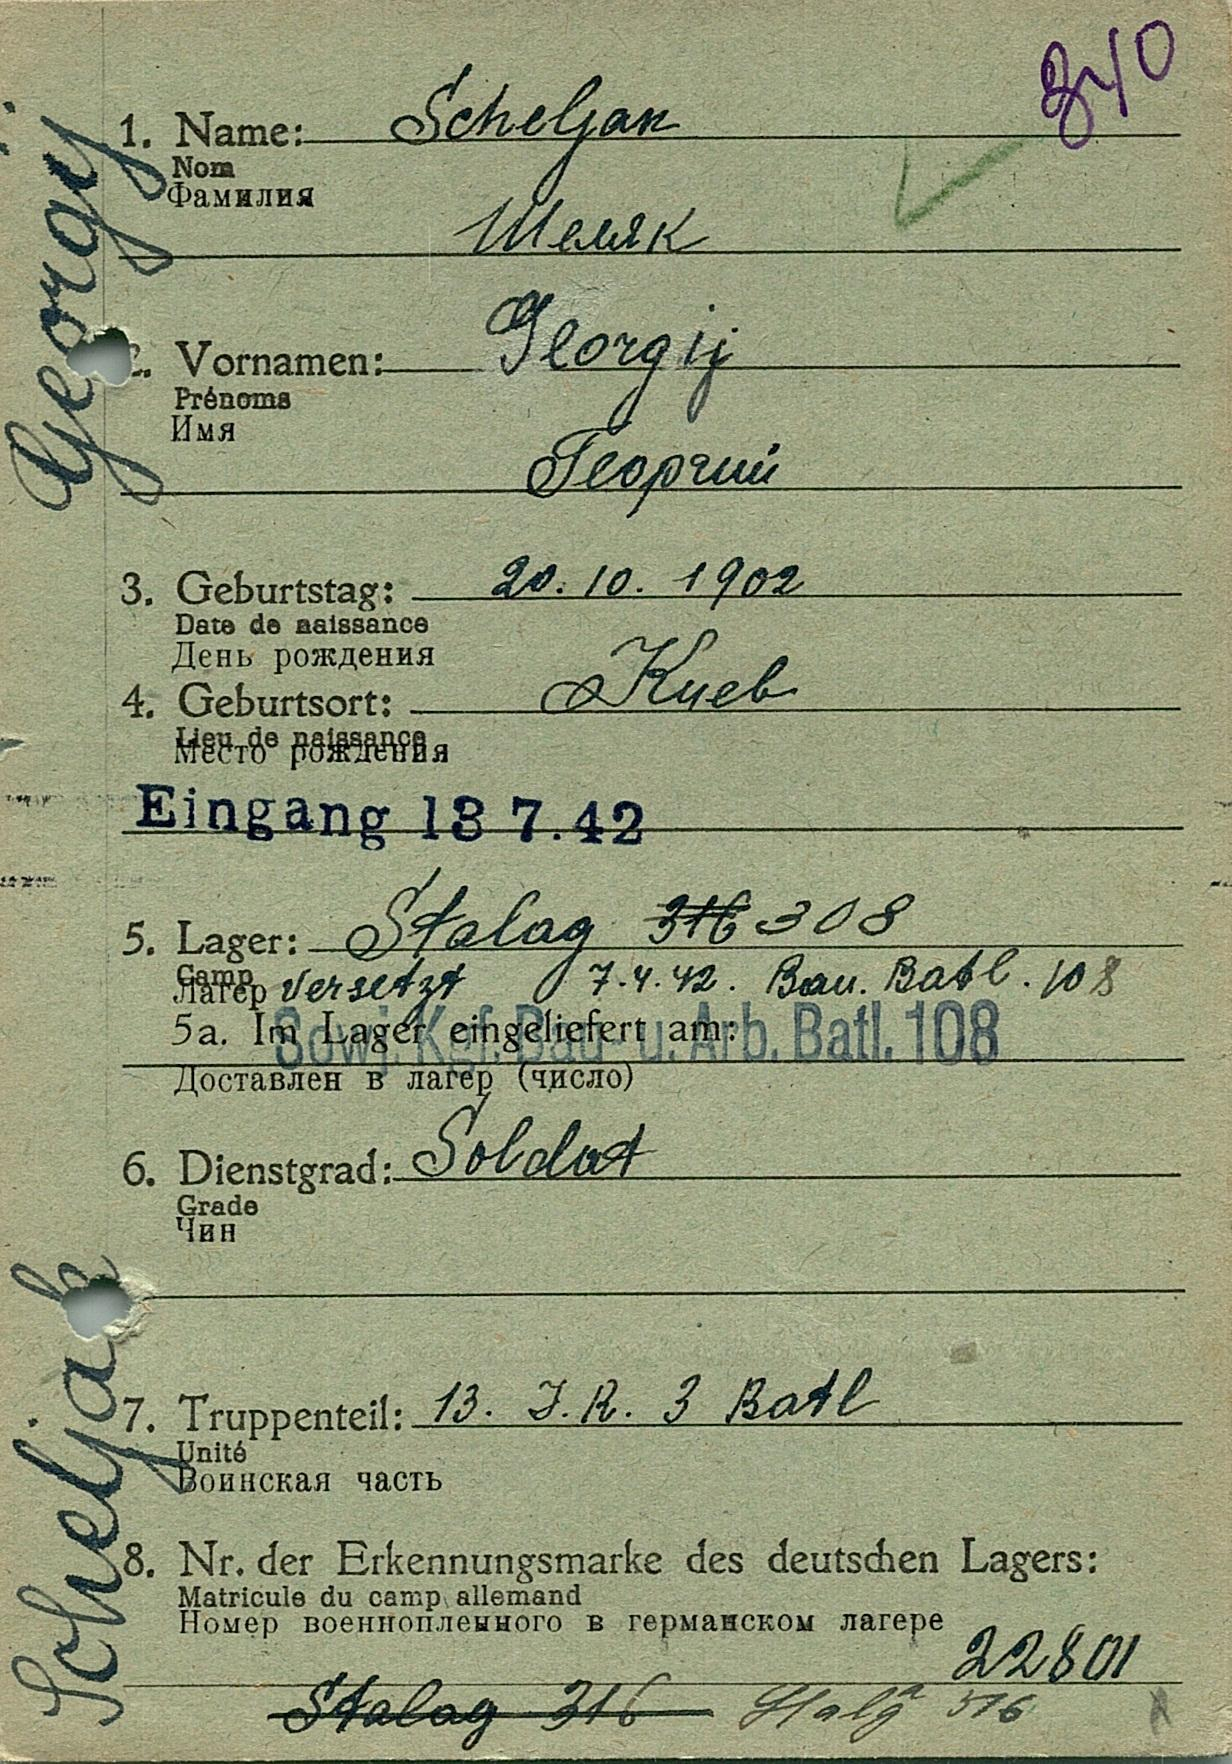 840
1. Name: Scheljak
Nom
Фамилия
Шеляк
Georgij
2. Vornamen: Georgij
Prénoms
Имя
Георгий
3. Geburtstag: 20.10.1902
Date de naissance
День рождения
4. Geburtsort: Киев
Lieu de naissance
Место рождения
Eingang 13 7.42
5. Lager: Stalag 316 308
Camp
Лагер versetzt 7.4.42. Bau. Batl. 108
5a. Im Lager eingeliefert am:
Sowj. Kgf. Bau- u. Arb. Batl. 108
Доставлен в лагер (число)
6. Dienstgrad: Soldat
Grade
Чин
Scheljak
7. Truppenteil: 13. J.R. 3 Batl
Unité
Воинская часть
8. Nr. der Erkennungsmarke des deutschen Lagers:
Matricule du camp allemand
Номер военнопленного в германском лагере
22801
Stalag 316 Stalg 316